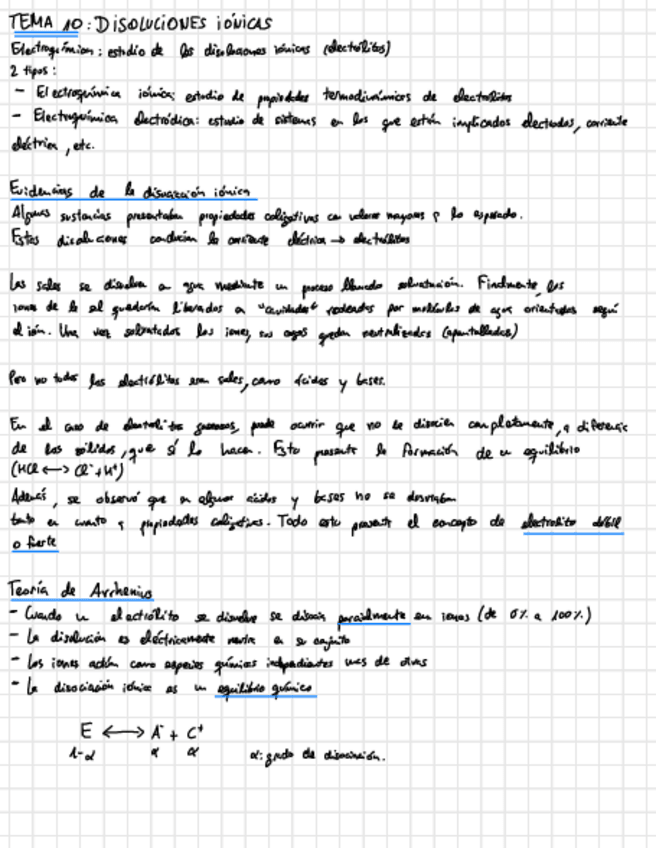 TEMA 10: DISOLUCIONES IÓNICAS
Electroquímica: estudio de las disoluciones iónicas (electrólitos)
2 tipos:
- Electroquímica iónica: estudio de propiedades termodinámicas de electrolitos
- Electroquímica electródica: estudio de sistemas en los que están implicados electrodos, corriente
eléctrica, etc.
Evidencias de la disociación iónica
Algunas sustancias presentaban propiedades coligativas con valores mayores a lo esperado.
Estas disoluciones conducían la corriente eléctrica → electrólitos
Las sales se disuelven en agua mediante un proceso llamado solvatación. Finalmente, los
iones de la sal quedarían liberados en "cavidades" rodeadas por moléculas de agua orientadas según
el ión. Una vez solvatados los iones, sus cargas quedan neutralizadas (apantalladas)
Pero no todos los electrólitos eran sales, como ácidos y bases.
En el caso de electrolitos gaseosos, puede ocurrir que no se disocien completamente, a diferencia
de los sólidos, que sí lo hacen. Esto presenta la formación de un equilibrio
(HCl ⟷ Cl⁻ + H⁺)
Además, se observó que en algunos ácidos y bases no se desviaban
tanto en cuanto a propiedades coligativas. Todo esto presenta el concepto de electrolito débil
o fuerte
Teoría de Arrhenius
- Cuando un electrólito se disuelve se disocia parcialmente en iones (de 0% a 100%)
- La disolución es eléctricamente neutra en su conjunto
- Los iones actúan como especies químicas independientes unas de otras
- La disociación iónica es un equilibrio químico
E ⟷ A⁻ + C⁺
1-α α α α: grado de disociación.